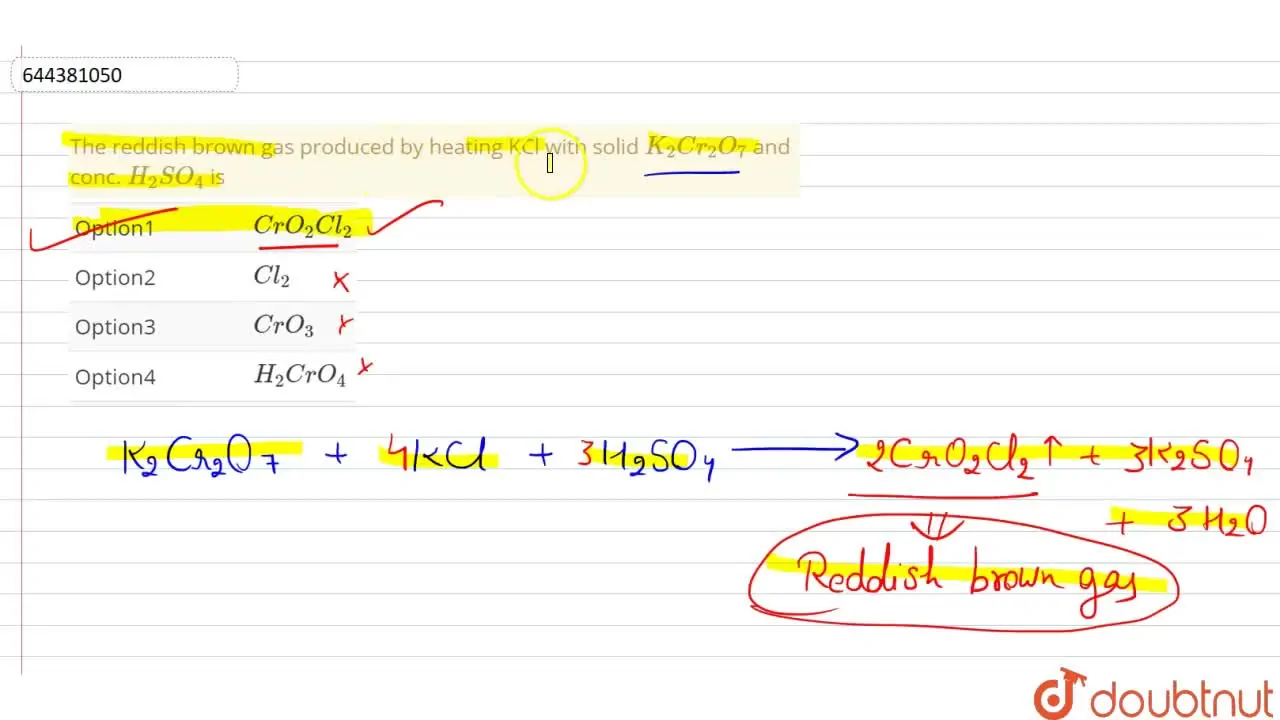 644381050
The reddish brown gas produced by heating KCl with solid K₂Cr₂O₇ and
conc. H₂SO₄ is
Option1 CrO₂Cl₂
Option2 Cl₂ x
Option3 CrO₃ x
Option4 H₂CrO₄ x
K₂Cr₂O₇ + 4KCl + 3H₂SO₄ ⟶ 2CrO₂Cl₂↑ + 3K₂SO₄
+ 3H₂O
Reddish brown gas
doubtnut